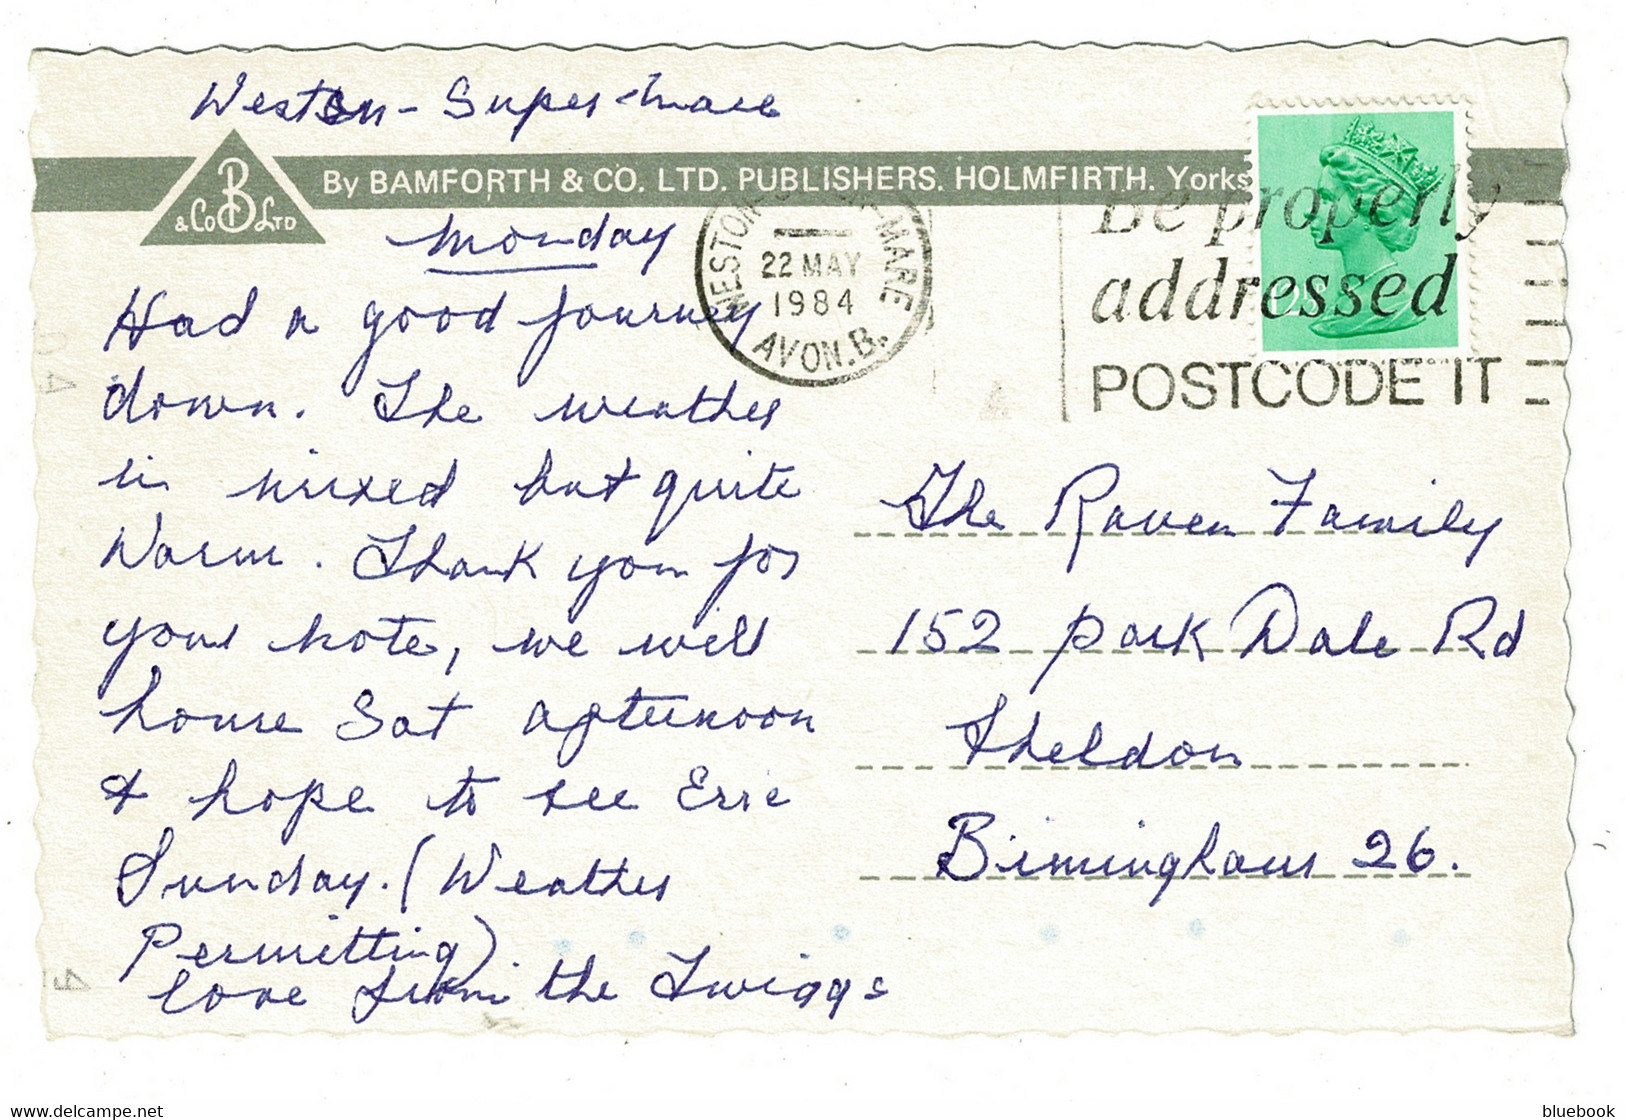 Weston-Super-mare
B & Co LTD
By BAMFORTH & CO. LTD. PUBLISHERS. HOLMFIRTH. Yorks
Monday
Had a good journey
down. The weather
is mixed but quite
Warm. Thank you for
your note, we will
home Sat afternoon
& hope to see Eric
Sunday. (Weather
Permitting).
love from the Twiggs
WESTON-SUPER-MARE
22 MAY
1984
AVON.B.
Be properly
addressed
POSTCODE IT
The Raven Family
152 Park Dale Rd
Sheldon
Birmingham 26.
bluebook
delcampe.com